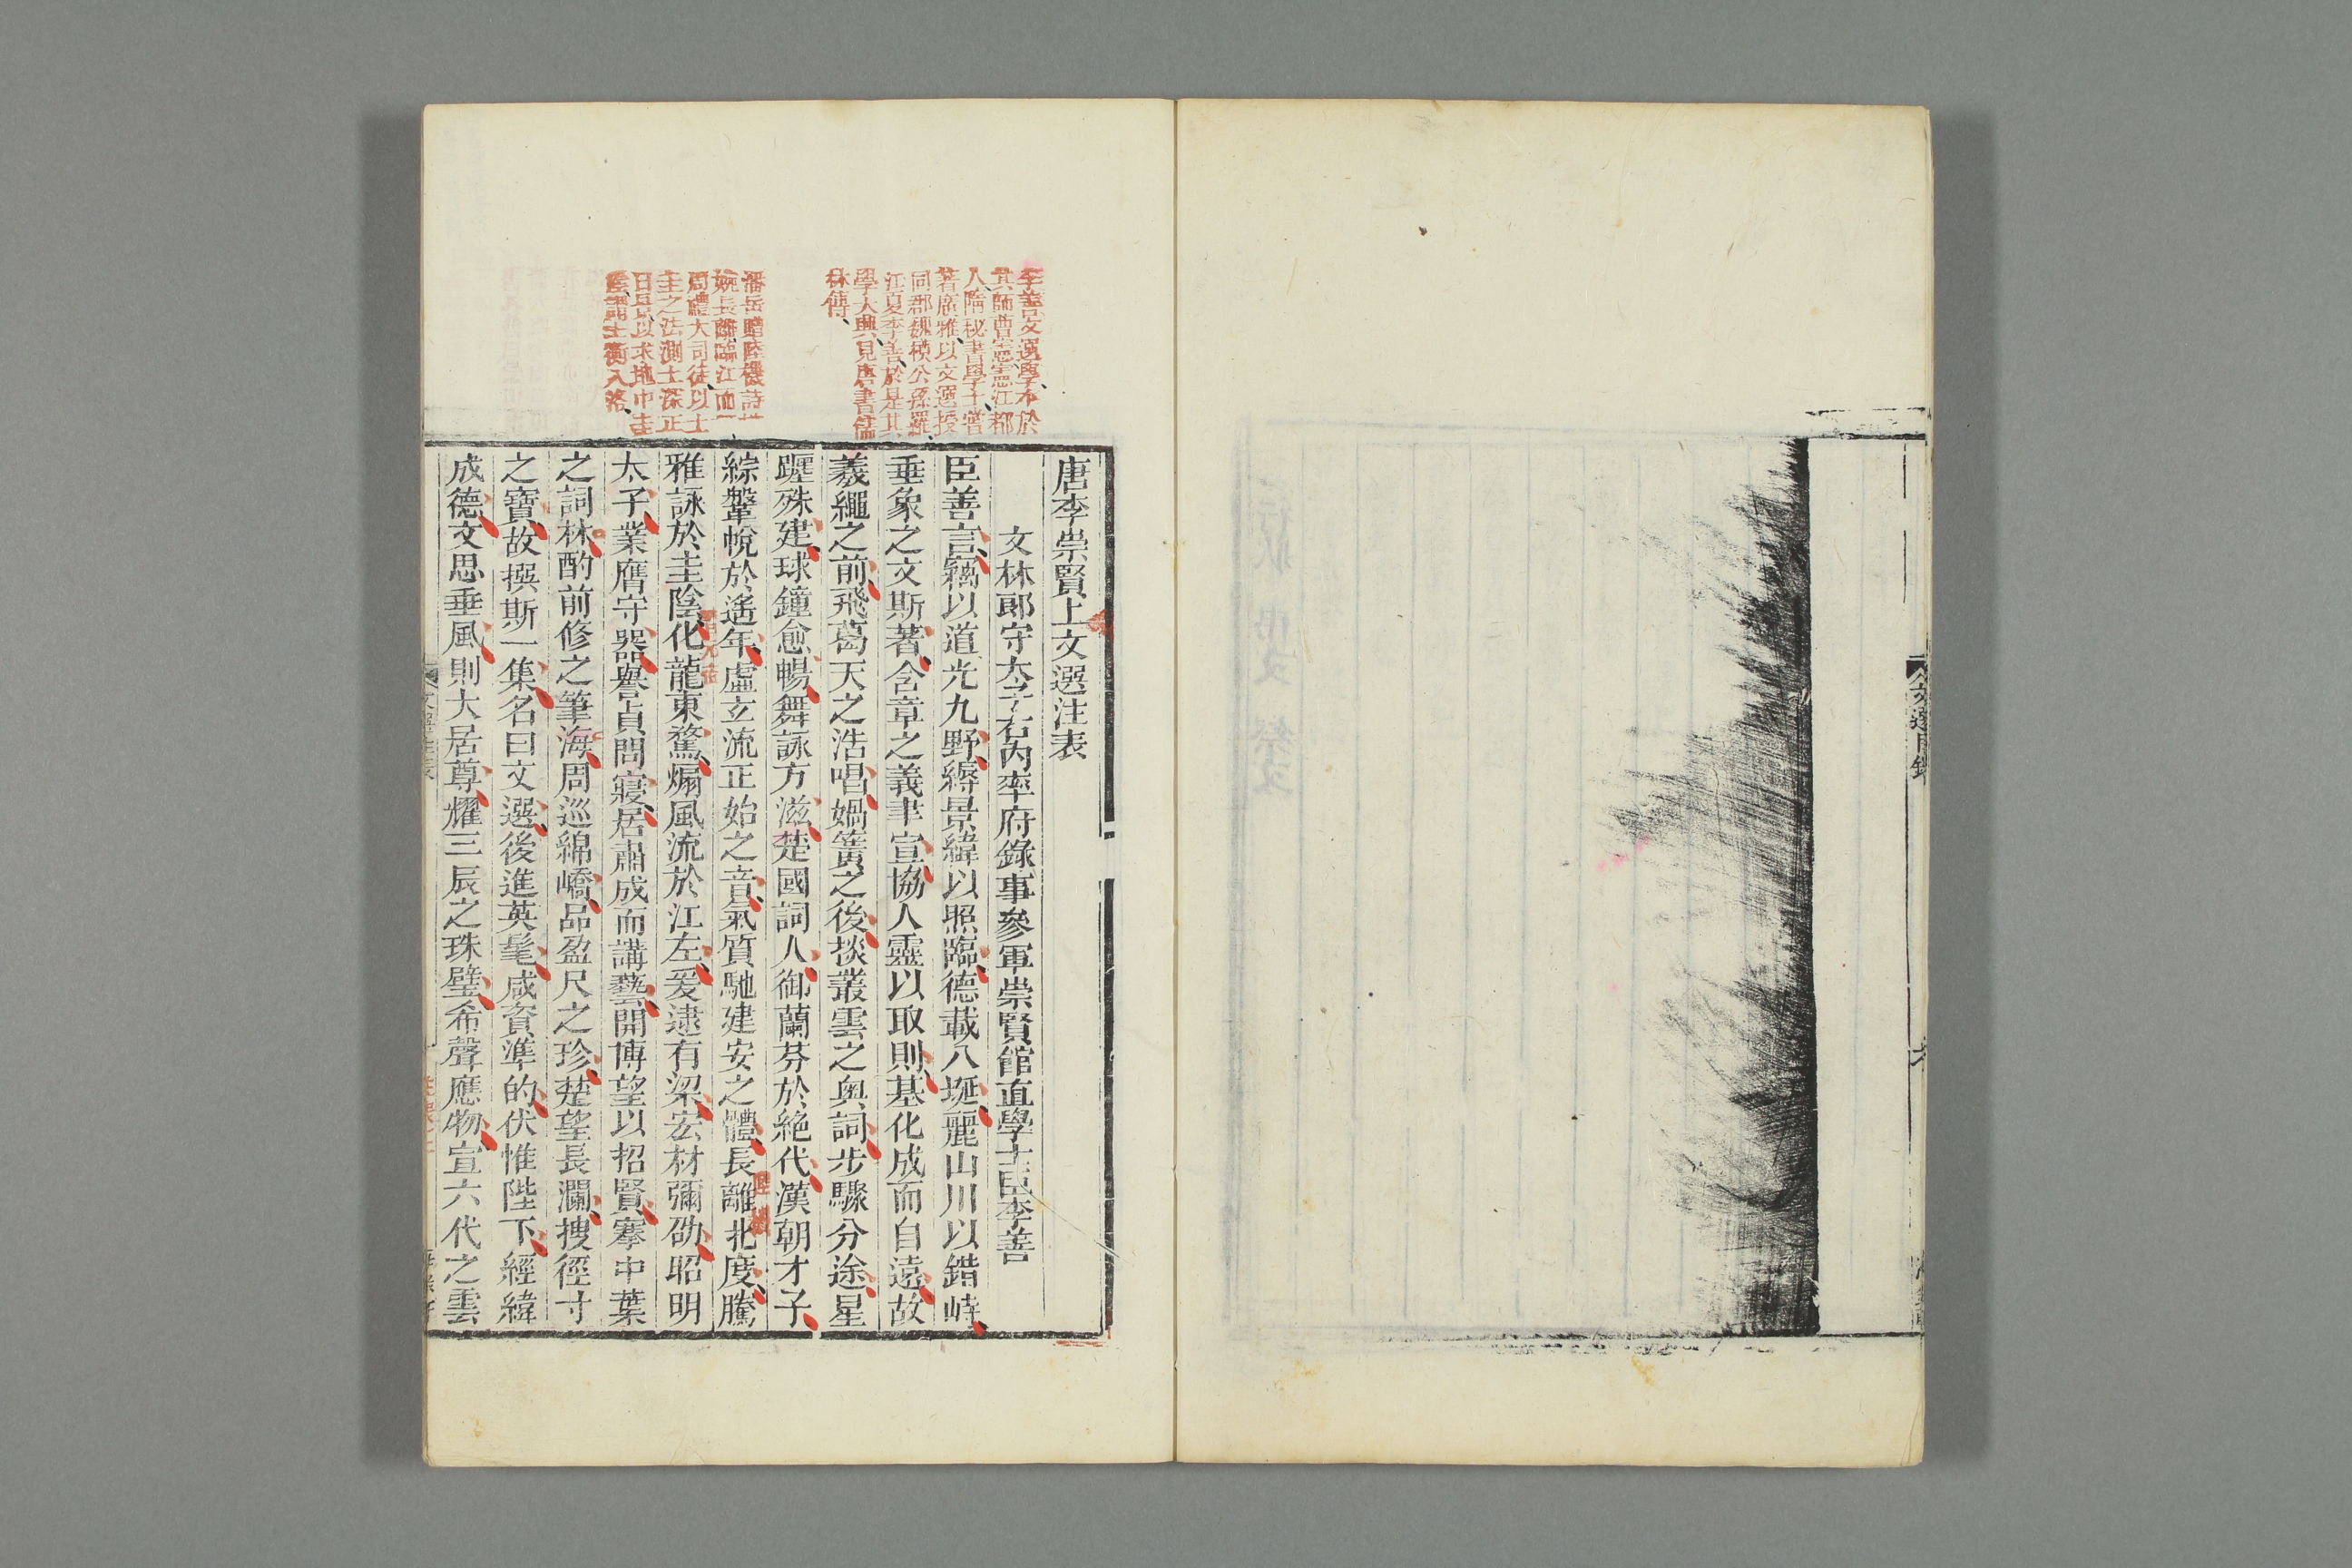 文選目錄
李善文選學本於
其師曹憲憲江都
人隋秘書學士嘗
著廣雅以文選授
同郡魏模公孫羅
江夏李善於是其
學大興見唐書儒
林傳
潘岳贈陸機詩
婉長離臨江而
周禮大司徒以土
圭之法測土深正
日景以求地中
唐李崇賢上文選注表
文林郎守太子右內率府錄事參軍崇賢館直學士臣李善
臣善言竊以道光九野縟景緯以照臨德載八埏麗山川以錯峙
垂象之文斯著含章之義聿宣協人靈以取則基化成而自遠故
羲繩之前飛葛天之浩唱媧簧之後掞叢雲之奧詞步驟分途星
躔殊建球鐘愈暢舞詠方滋楚國詞人御蘭芬於絕代漢朝才子
綜鞶帨於遙年虛玄流正始之音氣質馳建安之體長離北度騰
陸機
雅詠於圭陰化龍東騖煽風流於江左爰逮有梁宏材彌劭昭明
太子業膺守器譽貞問寢居肅成而講藝開博望以招賢搴中葉
之詞林酌前修之筆海周巡綿嶠品盈尺之珍楚望長瀾搜徑寸
之寶故撰斯一集名曰文選後進英髦咸資準的伏惟陛下經緯
成德文思垂風則大居尊耀三辰之珠璧希聲應物宣六代之雲